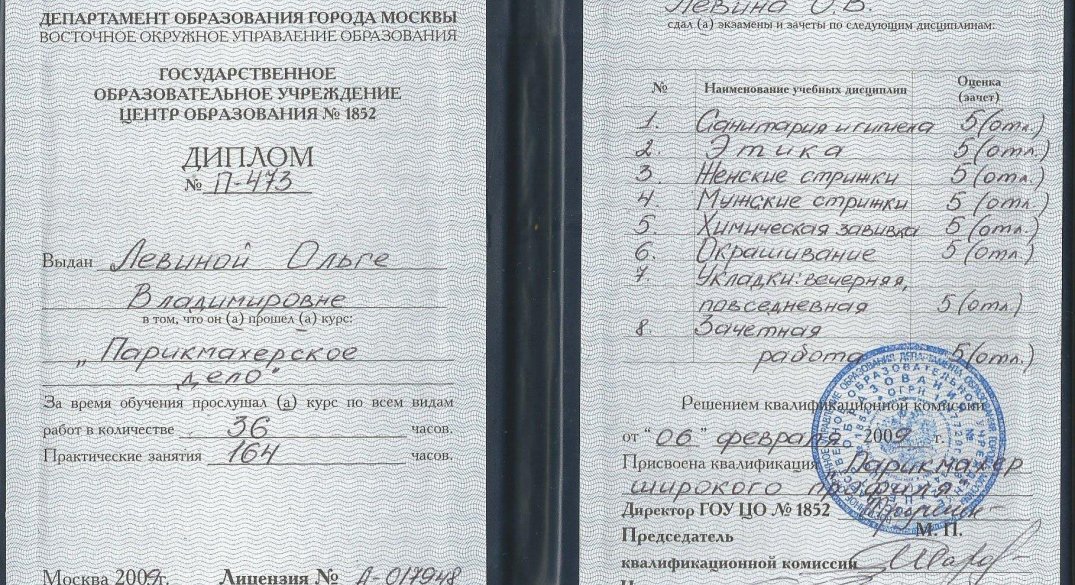 ДЕПАРТАМЕНТ ОБРАЗОВАНИЯ ГОРОДА МОСКВЫ
ВОСТОЧНОЕ ОКРУЖНОЕ УПРАВЛЕНИЕ ОБРАЗОВАНИЯ
ГОСУДАРСТВЕННОЕ
ОБРАЗОВАТЕЛЬНОЕ УЧРЕЖДЕНИЕ
ЦЕНТР ОБРАЗОВАНИЯ № 1852
ДИПЛОМ
№ П-473
Выдан Левиной Ольге
Владимировне
в том, что он (а) прошел (а) курс:
„Парикмахерское
дело"
За время обучения прослушал (а) курс по всем видам
работ в количестве 36 часов.
Практические занятия 164 часов.
Москва 2009г. Лицензия № А-017948
Левина О.В.
сдал (а) экзамены и зачеты по следующим дисциплинам:
№ Наименование учебных дисциплин Оценка
(зачет)
1. Санитария и гигиена 5 (отл.)
2. Этика 5 (отл.)
3. Женские стрижки 5 (отл.)
4. Мужские стрижки 5 (отл.)
5. Химическая завивка 5 (отл.)
6. Окрашивание 5 (отл.)
7. Укладки: вечерняя,
повседневная 5 (отл.)
8 Зачетная
работа 5 (отл.)
Решением квалификационной комиссии
от "06" февраля 2009 г.
Присвоена квалификация Парикмахер
широкого профиля.
Директор ГОУ ЦО № 1852
М. П.
Председатель
квалификационной комиссии